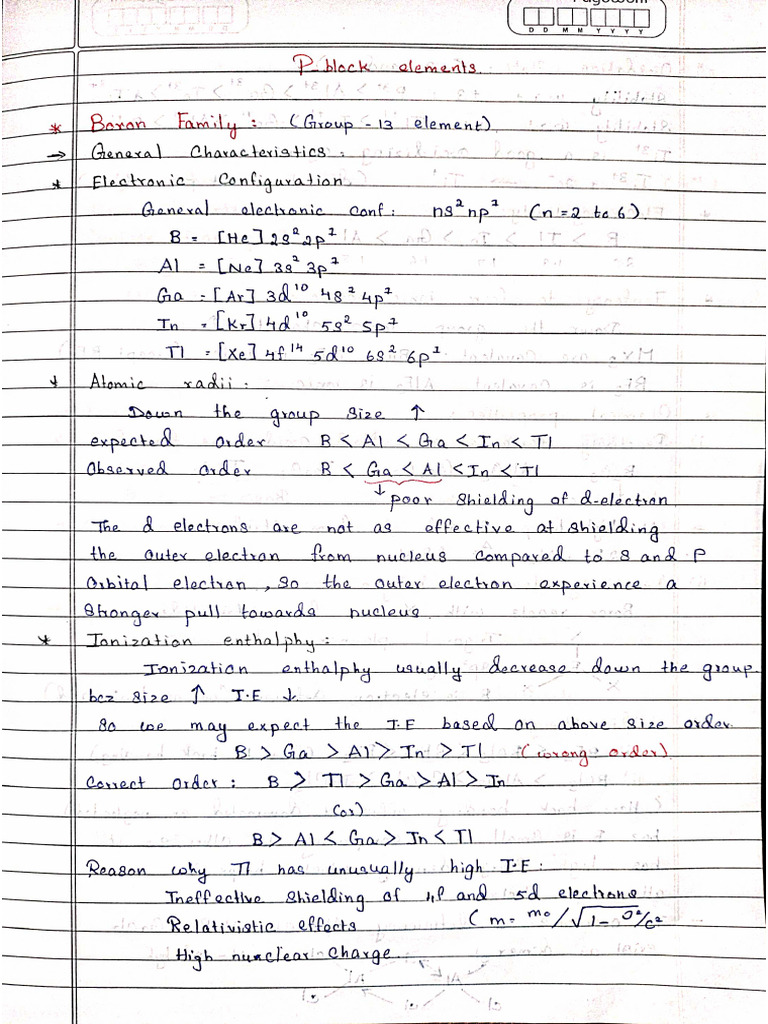 D D M M Y Y Y Y
P-block elements.
* Boron Family : (Group - 13 element)
→ General Characteristics :
* Electronic Configuration
General electronic conf: ns²np¹ (n=2 to 6).
B = [He] 2s² 2p¹
Al = [Ne] 3s² 3p¹
Ga = [Ar] 3d¹⁰ 4s² 4p¹
In = [Kr] 4d¹⁰ 5s² 5p¹
Tl = [Xe] 4f¹⁴ 5d¹⁰ 6s² 6p¹
* Atomic radii :
Down the group size ↑
expected order B < Al < Ga < In < Tl
Observed order B < Ga < Al < In < Tl
↓ poor shielding of d-electron
The d electrons are not as effective at shielding
the outer electron from nucleus compared to s and p
orbital electron, so the outer electron experience a
stronger pull towards nucleus.
* Ionization enthalphy :
Ionization enthalphy usually decrease down the group.
bcz size ↑ I.E ↓.
So we may expect the I.E based on above size order.
B > Ga > Al > In > Tl (wrong order)
Correct order : B > Tl > Ga > Al > In
(or)
B > Al < Ga > In < Tl
Reason why Tl has unusually high I.E :
Ineffective shielding of 4f and 5d electrons
Relativistic effects (m = m₀/√1-v²/c²
High nuclear charge.